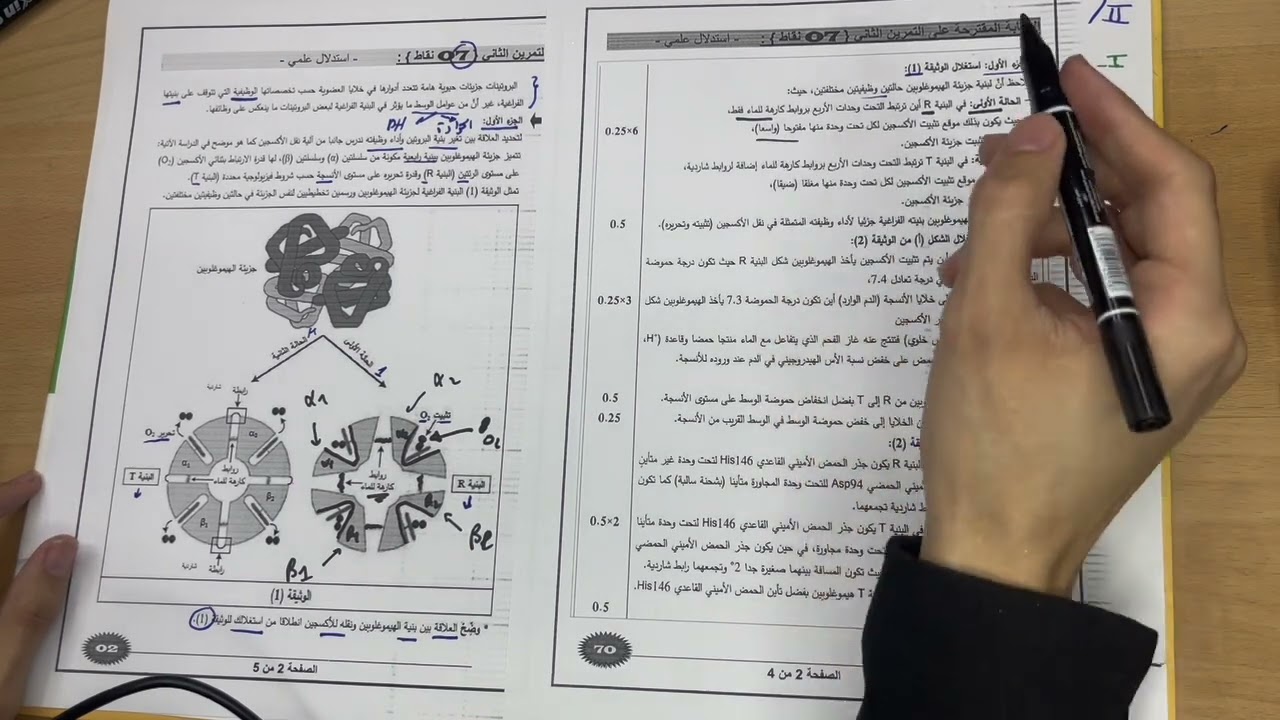 التمرين الثاني { 07 نقاط } : - استدلال علمي -
البروتينات جزيئات حيوية هامة تتعدد أدوارها في خلايا العضوية حسب تخصصاتها الوظيفية التي تتوقف على بنيتها
الفراغية، غير أنّ من عوامل الوسط ما يؤثر في البنية الفراغية لبعض البروتينات ما ينعكس على وظائفها.
الجزء الأول:
PH
لتحديد العلاقة بين تغير بنية البروتين وأداء وظيفته ندرس جانبا من آلية نقل الأكسجين كما هو موضح في الدراسة الآتية:
تتميز جزيئة الهيموغلوبين ببنية رابعية مكونة من سلسلتين (α) وسلسلتين (β)، لها قدرة الارتباط بثنائي الأكسجين (O₂)
على مستوى الرئتين (البنية R) وقدرة تحريره على مستوى الأنسجة حسب شروط فيزيولوجية محددة (البنية T).
تمثل الوثيقة (1) البنية الفراغية لجزيئة الهيموغلوبين ورسمين تخطيطيين لنفس الجزيئة في حالتين وظيفيتين مختلفتين.
جزيئة الهيموغلوبين
الحالة الثانية
الحالة الأولى
1
رابطة
شاردية
تحرير O₂
α₁
α₂
روابط
كارهة للماء
β₁
β₂
البنية T
رابطة
شاردية
α1
α2
تثبيت O₂
O₂
روابط
كارهة للماء
البنية R
β1
β2
الوثيقة (1)
* وضّح العلاقة بين بنية الهيموغلوبين ونقله للأكسجين انطلاقا من استغلالك للوثيقة (1).
02
الصفحة 2 من 5
II
I-
المقترحة على التمرين الثاني { 07 نقاط } : - استدلال علمي -
الأول: استغلال الوثيقة (1):
أنّ لبنية جزيئة الهيموغلوبين حالتين وظيفيتين مختلفتين، حيث:
الحالة الأولى: في البنية R أين ترتبط التحت وحدات الأربع بروابط كارهة للماء فقط،
يكون بذلك موقع تثبيت الأكسجين لكل تحت وحدة منها مفتوحا (واسعا)،
تثبيت جزيئة الأكسجين.
في البنية T ترتبط التحت وحدات الأربع بروابط كارهة للماء إضافة لروابط شاردية،
موقع تثبيت الأكسجين لكل تحت وحدة منها مغلقا (ضيقا)،
جزيئة الأكسجين.
0.25×6
الهيموغلوبين بنيته الفراغية جزئيا لأداء وظيفته المتمثلة في نقل الأكسجين (تثبيته وتحريره).
0.5
الشكل (أ) من الوثيقة (2):
أين يتم تثبيت الأكسجين يأخذ الهيموغلوبين شكل البنية R حيث تكون درجة حموضة
درجة تعادل 7.4،
خلايا الأنسجة (الدم الوارد) أين تكون درجة الحموضة 7.3 يأخذ الهيموغلوبين شكل
الأكسجين
0.25×3
خلوي) فتنتج عنه غاز الفحم الذي يتفاعل مع الماء منتجا حمضا وقاعدة (H⁺،
على خفض نسبة الأس الهيدروجيني في الدم عند وروده للأنسجة.
من R إلى T بفضل انخفاض حموضة الوسط على مستوى الأنسجة.
0.5
الخلايا إلى خفض حموضة الوسط في الوسط القريب من الأنسجة.
0.25
(2):
البنية R يكون جذر الحمض الأميني القاعدي His146 لتحت وحدة غير متأين
الأميني الحمضي Asp94 للتحت وحدة المجاورة متأينا (بشحنة سالبة) كما تكون
شاردية تجمعهما.
في البنية T يكون جذر الحمض الأميني القاعدي His146 لتحت وحدة متأينا
0.5×2
تحت وحدة مجاورة، في حين يكون جذر الحمض الأميني الحمضي
تكون المسافة بينهما صغيرة جدا 2° وتجمعهما رابط شاردية.
T هيموغلوبين بفضل تأين الحمض الأميني القاعدي His146
0.5
70
الصفحة 2 من 4